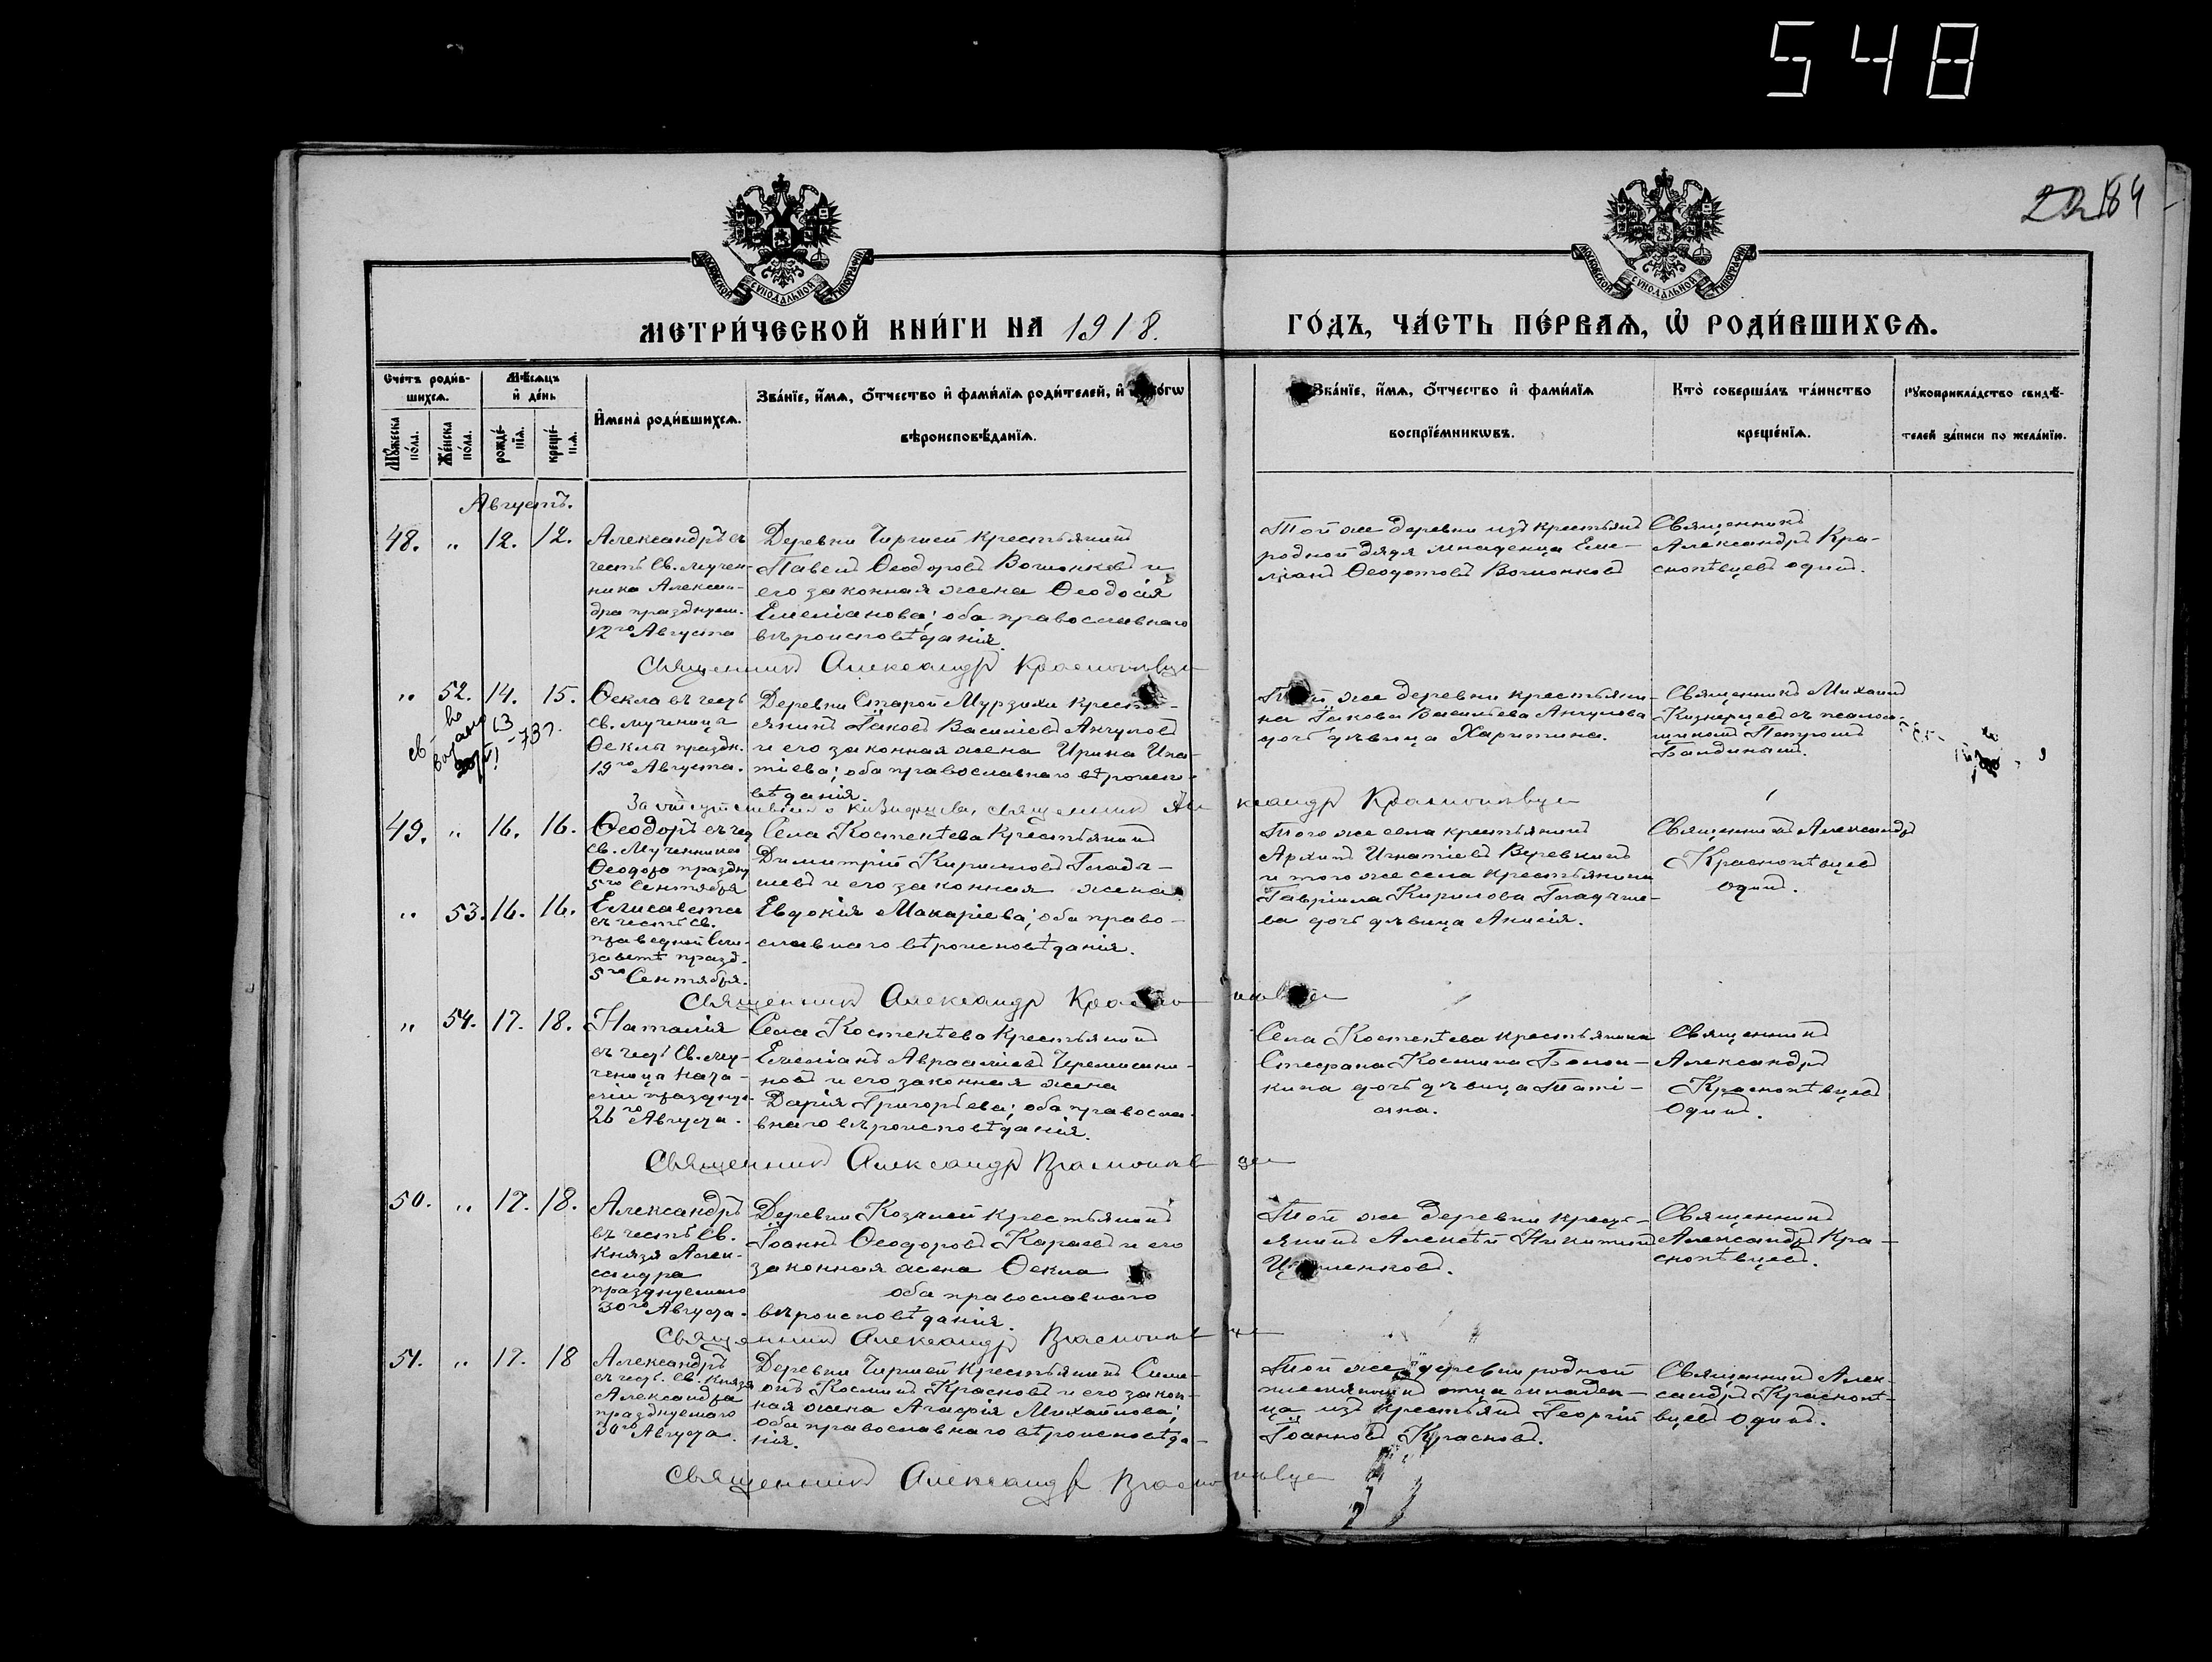 548
22 184
МОСКОВСКОЙ СѴНОДАЛЬНОЙ ТИПОГРАФІИ
МОСКОВСКОЙ СѴНОДАЛЬНОЙ ТИПОГРАФІИ
МЕТРИ́ЧЕСКОЙ КНИ́ГИ НА 1918. ГО́ДЪ, ЧА́СТЬ ПЕ́РВАѦ, Ѽ РОДИ́ВШИХСѦ.
Сче́тъ роди́в-
шихсѧ.
Мꙋ́жеска по́ла.
Же́нска по́ла.
Мѣ́сѧцъ и҆ де́нь
рожде́-нїѧ.
креще́-нїѧ.
И҆мена̀ роди́вшихсѧ.
Зва́нїе, и҆́мѧ, ѻ҆́тчество и҆ фами́лїѧ роди́телей, и҆
вѣроисповѣ́данїѧ.
Зва́нїе, и҆́мѧ, ѻ҆́тчество и҆ фами́лїѧ
воспрїе́мникѡвъ.
Кто̀ соверша́лъ та́инство
креще́нїѧ.
Рꙋкоприкла́дство свидѣ́-
телей за́писи по жела́нїю.
Августъ.
48. " 12. 12.
Александръ въ
честь Св. мучен-
ника Алексан-
дра празднуем.
12го Августа
Деревни Чиршей крестьянинъ
Павелъ Ѳеодоровъ Волчонковъ и
его законная жена Ѳеодосія
Емеліанова; оба православнаго
вѣроисповѣданія.
Той же деревни изъ крестьянъ
родной дядя младенца Еме-
ліанъ Ѳеодотовъ Волчонковъ
Священникъ
Александръ Кра-
снопѣвцевъ одинъ.
Священникъ Александръ Краснопѣвцевъ
" 52. 14. 15.
Ѳекла въ честь
св. мученицы
Ѳеклы праздн.
19го Августа.
Деревни Старой Мурзихи кресть-
янинъ Іаковъ Василіевъ Анчуловъ
и его законная жена Ирина Игна-
тіева; оба православнаго вѣроиспо-
вѣданія.
Той же деревни крестьяни-
на Іакова Василіева Анчулова
дочь дѣвица Харитина.
Священникъ Михаилъ
Кизнерцевъ съ псалом-
щикомъ Петромъ
Бандинымъ.
За отсутствіемъ о. Кизнерцева, священникъ Александръ Краснопѣвцевъ
49. " 16. 16.
Ѳеодоръ въ чест
св. Мученика
Ѳеодора праздну
5го Сентября
Села Костенѣева Крестьянинъ
Димитрій Кириловъ Глады-
шевъ и его законная жена
Того же села крестьянинъ
Архипъ Игнатіевъ Веревкинъ
и того же села крестьянина
Гавріила Кирилова Гладыше-
ва дочь дѣвица Анисія.
Священникъ Александръ
Краснопѣвцевъ
одинъ.
" 53. 16. 16.
Елисавета
въ честь св.
праведной Ели-
заветѣ празд.
5го Сентября.
Евдокія Макаріева; оба право-
славнаго вѣроисповѣданія.
Священникъ Александръ Краснопѣвцевъ
" 54. 17. 18.
Наталія
въ честь Св. му-
ченицы Ната-
ліи праздну-
26го Августа.
Села Костенѣева Крестьянинъ
Емеліанъ Авраамовъ Черемисин-
новъ и его законная жена
Дарія Григорьева; оба правосла-
внаго вѣроисповѣданія.
Села Костенѣева крестьянина
Стефана Космина
дочь дѣвица Таті-
ана.
Священникъ
Александръ
Краснопѣвцевъ
Одинъ.
Священникъ Александръ Краснопѣвцевъ
50. " 17. 18.
Александръ
въ честь Св.
Князя Алек-
сандра
празднуемаго
30го Августа.
Деревни Козчией крестьянинъ
Іоаннъ Ѳеодоровъ Караевъ и его
законная жена Ѳекла
оба православнаго
вѣроисповѣданія.
Той же деревни крест-
янинъ Алексѣй Никитинъ
Священникъ
Александръ Кра-
снопѣвцевъ.
Священникъ Александръ Краснопѣвцевъ
51. " 17. 18
Александръ
въ честь Св. князя
Александра
празднуемаго
30го Августа.
Деревни Чиршей крестьянинъ Симе-
онъ Косминъ Красновъ и его закон-
ная жена Агафія Михайлова;
оба православнаго вѣроисповѣда-
нія.
Той же деревни родной
племянникъ отца младен-
ца изъ крестьянъ Георгій
Іоанновъ Красновъ.
Священникъ Алек-
сандръ Краснопѣ-
вцевъ одинъ.
Священникъ Александръ Краснопѣвцевъ